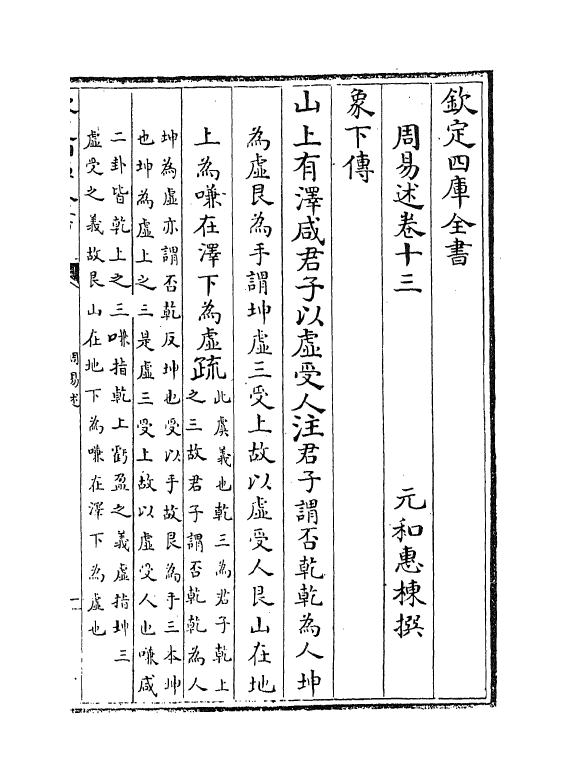 欽定四庫全書
周易述卷十三
元和惠棟撰
象下傳
山上有澤咸君子以虛受人注君子謂否乾乾為人坤
為虛艮為手謂坤虛三受上故以虛受人艮山在地
上為嗛在澤下為虛疏
此虞義也乾三為君子乾上
之三故君子謂否乾乾為人
坤為虛亦謂否乾反坤也受以手故艮為手三本坤
也坤為虛上之三是虛三受上故以虛受人也嗛咸
二卦皆乾上之三嗛指乾上虧盈之義虛指坤三
虛受之義故艮山在地下為嗛在澤下為虛也
周易述
一